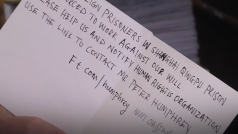 IGN PRISONERS IN SHANGHAI QINGPU PRISON
RCED TO WORK AGAINST OUR WILL
EASE HELP US AND NOTIFY HUMAN RIGHTS ORGANIZATION
USE THE LINK TO CONTACT MR PETER HUMPHREY
Ft.com/humphrey